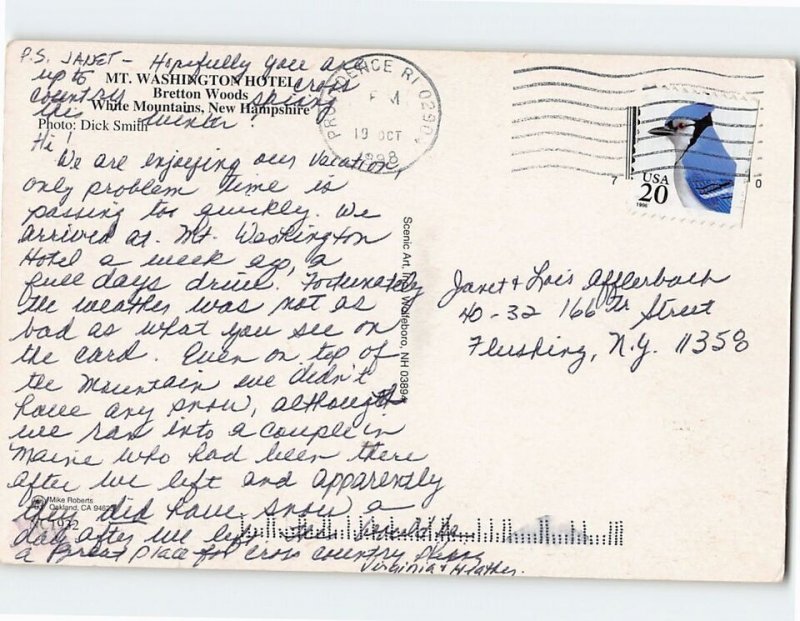 P.S. JANET - Hopefully you are
up to cross
country skiing
this winter.
MT. WASHINGTON HOTEL
Bretton Woods
White Mountains, New Hampshire
Photo: Dick Smith
Hi!
We are enjoying our vacation,
only problem time is
passing too quickly. We
arrived at Mt. Washington
Hotel a week ago, a
full days drive. Fortunately
the weather was not as
bad as what you see on
the card. Even on top of
the Mountain we didn't
have any snow, although
we ran into a couple in
Maine who had been there
after we left and apparently
they did have snow a
day after we left. This would be
a Great place for cross country skiing
Virginia & Heather.
Mike Roberts
Oakland, CA
C1932
Scenic Art, Wolfeboro, NH 03894
PROVIDENCE RI 029
PM
19 OCT
1998
USA
20
1996
7 0
Janet & Lois Afflerbach
40-32 166th Street
Flushing, N.Y. 11358